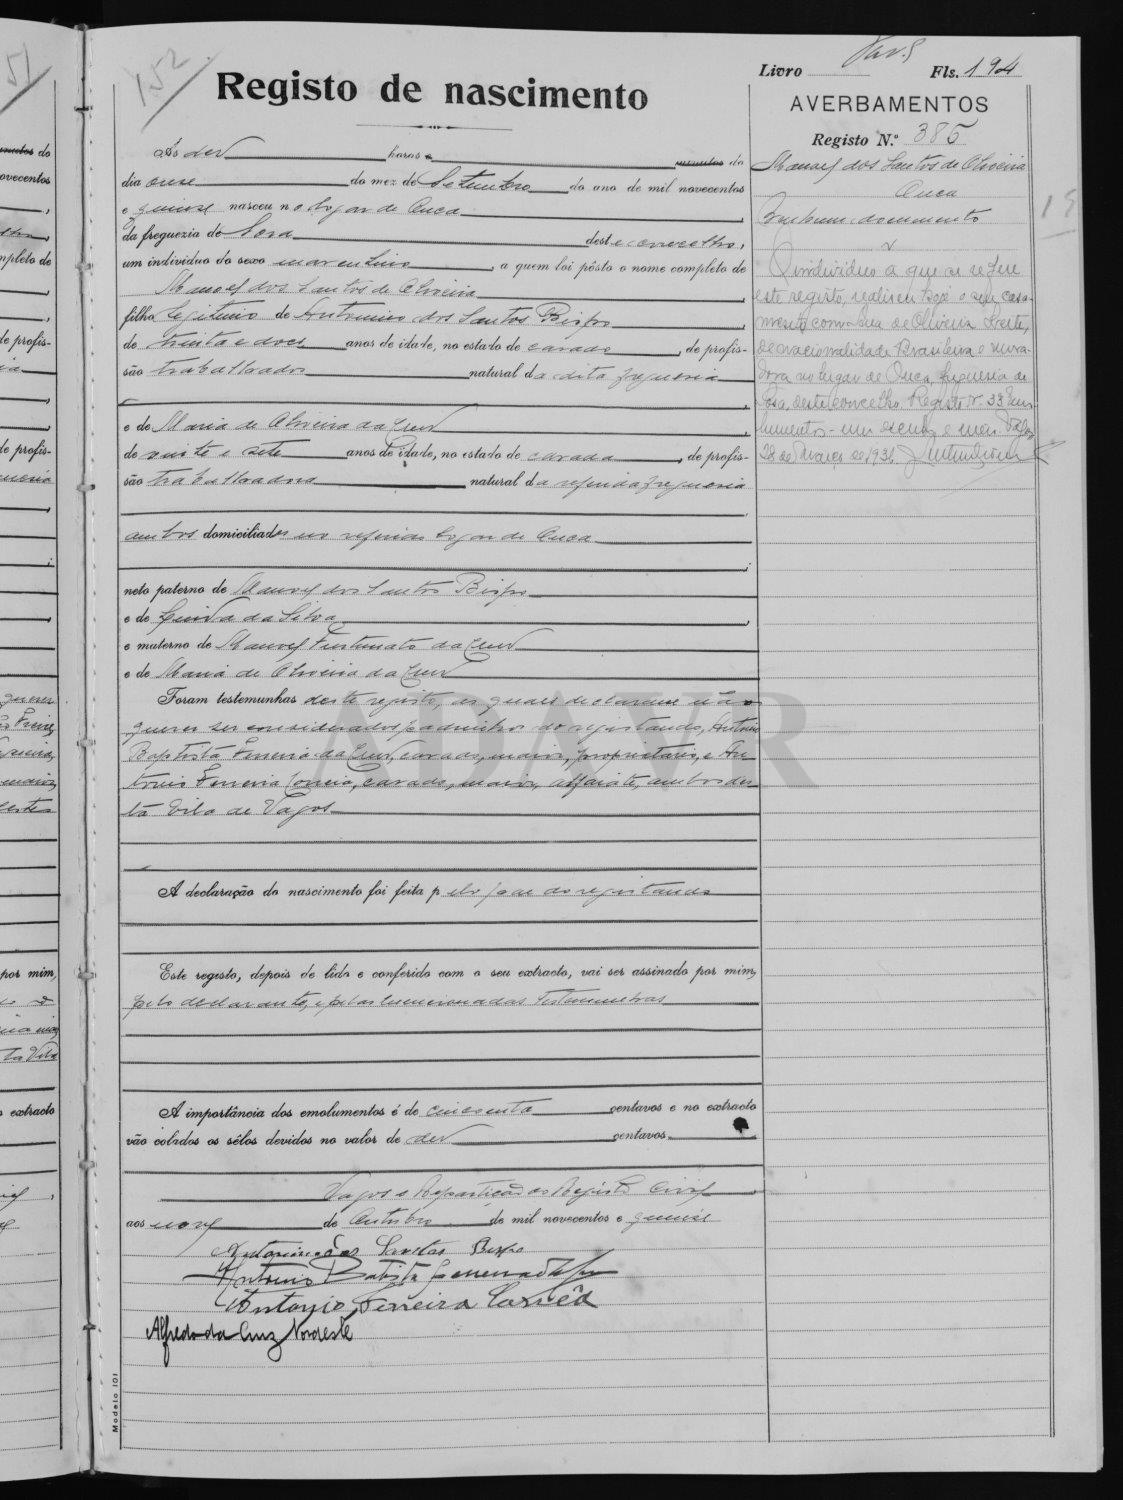 152
Registo de nascimento
Livro
Fls. 194
AVERBAMENTOS
Registo N.º 386
Manoel dos Santos de Oliveira
Ouca
Nenhum documento
Ás dez horas e minutos do
dia onze do mez de Setembro do ano de mil novecentos
e quinze nasceu no logar de Ouca
da freguezia de Soza deste concelho,
um individuo do sexo masculino, a quem foi pôsto o nome completo de
Manoel dos Santos de Oliveira
filho legitimo de Antonino dos Santos Bispo
de trinta e dois anos de idade, no estado de casado, de profis-
são trabalhador natural da dita freguesia
e de Maria de Oliveira da Cruz
de vinte e sete anos de idade, no estado de casada, de profis-
são trabalhadora natural da referida freguesia
ambos domiciliados no referido logar de Ouca
neto paterno de Manoel dos Santos Bispo
e de da Silva
e materno de Manoel Furtunato da Cruz
e de Maria de Oliveira da Cruz
Foram testemunhas deste registo, as quais declararam não
querer ser considerados padrinhos do registando, Antonio
Baptista Ferreira da Cruz, casado, maior, proprietario, e An-
tonio Ferreira Correia, casado, maior, alfaiate, ambos des-
ta Vila de Vagos
A declaração do nascimento foi feita pelo pae do registando
Este registo, depois de lido e conferido com o seu extracto, vai ser assinado por mim,
pelo declarante, e pelas mencionadas testemunhas
A importância dos emolumentos é de cincoenta centavos e no extracto
vão colados os sêlos devidos no valor de dez centavos.
Vagos e Repartição do Registo Civil
aos nove de Outubro de mil novecentos e quinze
Antonino dos Santos Bispo
Antonio Batista Ferreira da Cruz
Antonio Ferreira Corrêa
Alfredo da Cruz Nordeste
O individuo a que se refere
este registo, realisou hoje o seu casa-
mento com de Oliveira
de nacionalidade Brasileira e mora-
dora no lugar de Ouca, freguesia de
Sosa, deste concelho. Registo N.º 33. Emo-
lumentos - um escudo e meio. Vagos
28 de Março de 1936.
Modelo 101
ADAVR